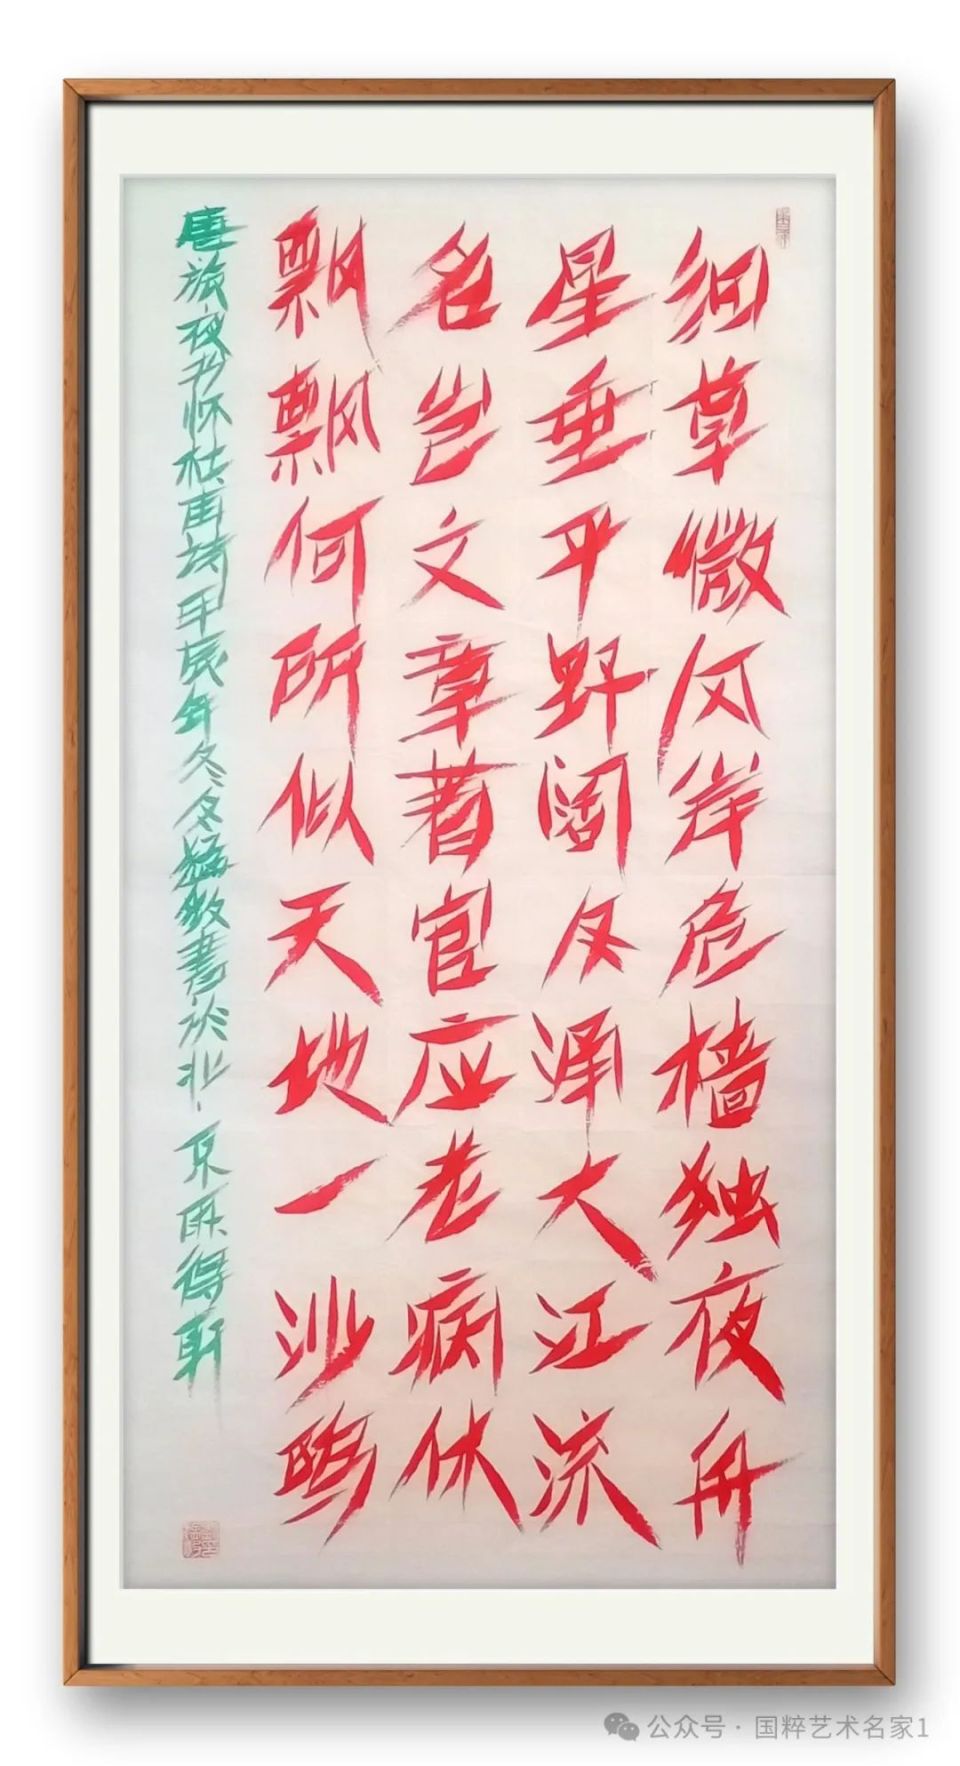 细草微风岸危樯独夜舟
星垂平野阔月涌大江流
名岂文章著官应老病休
飘飘何所似天地一沙鸥
唐旅夜书怀杜甫诗甲辰年冬月猛敬書於北京得軒
公众号 · 国粹艺术名家1